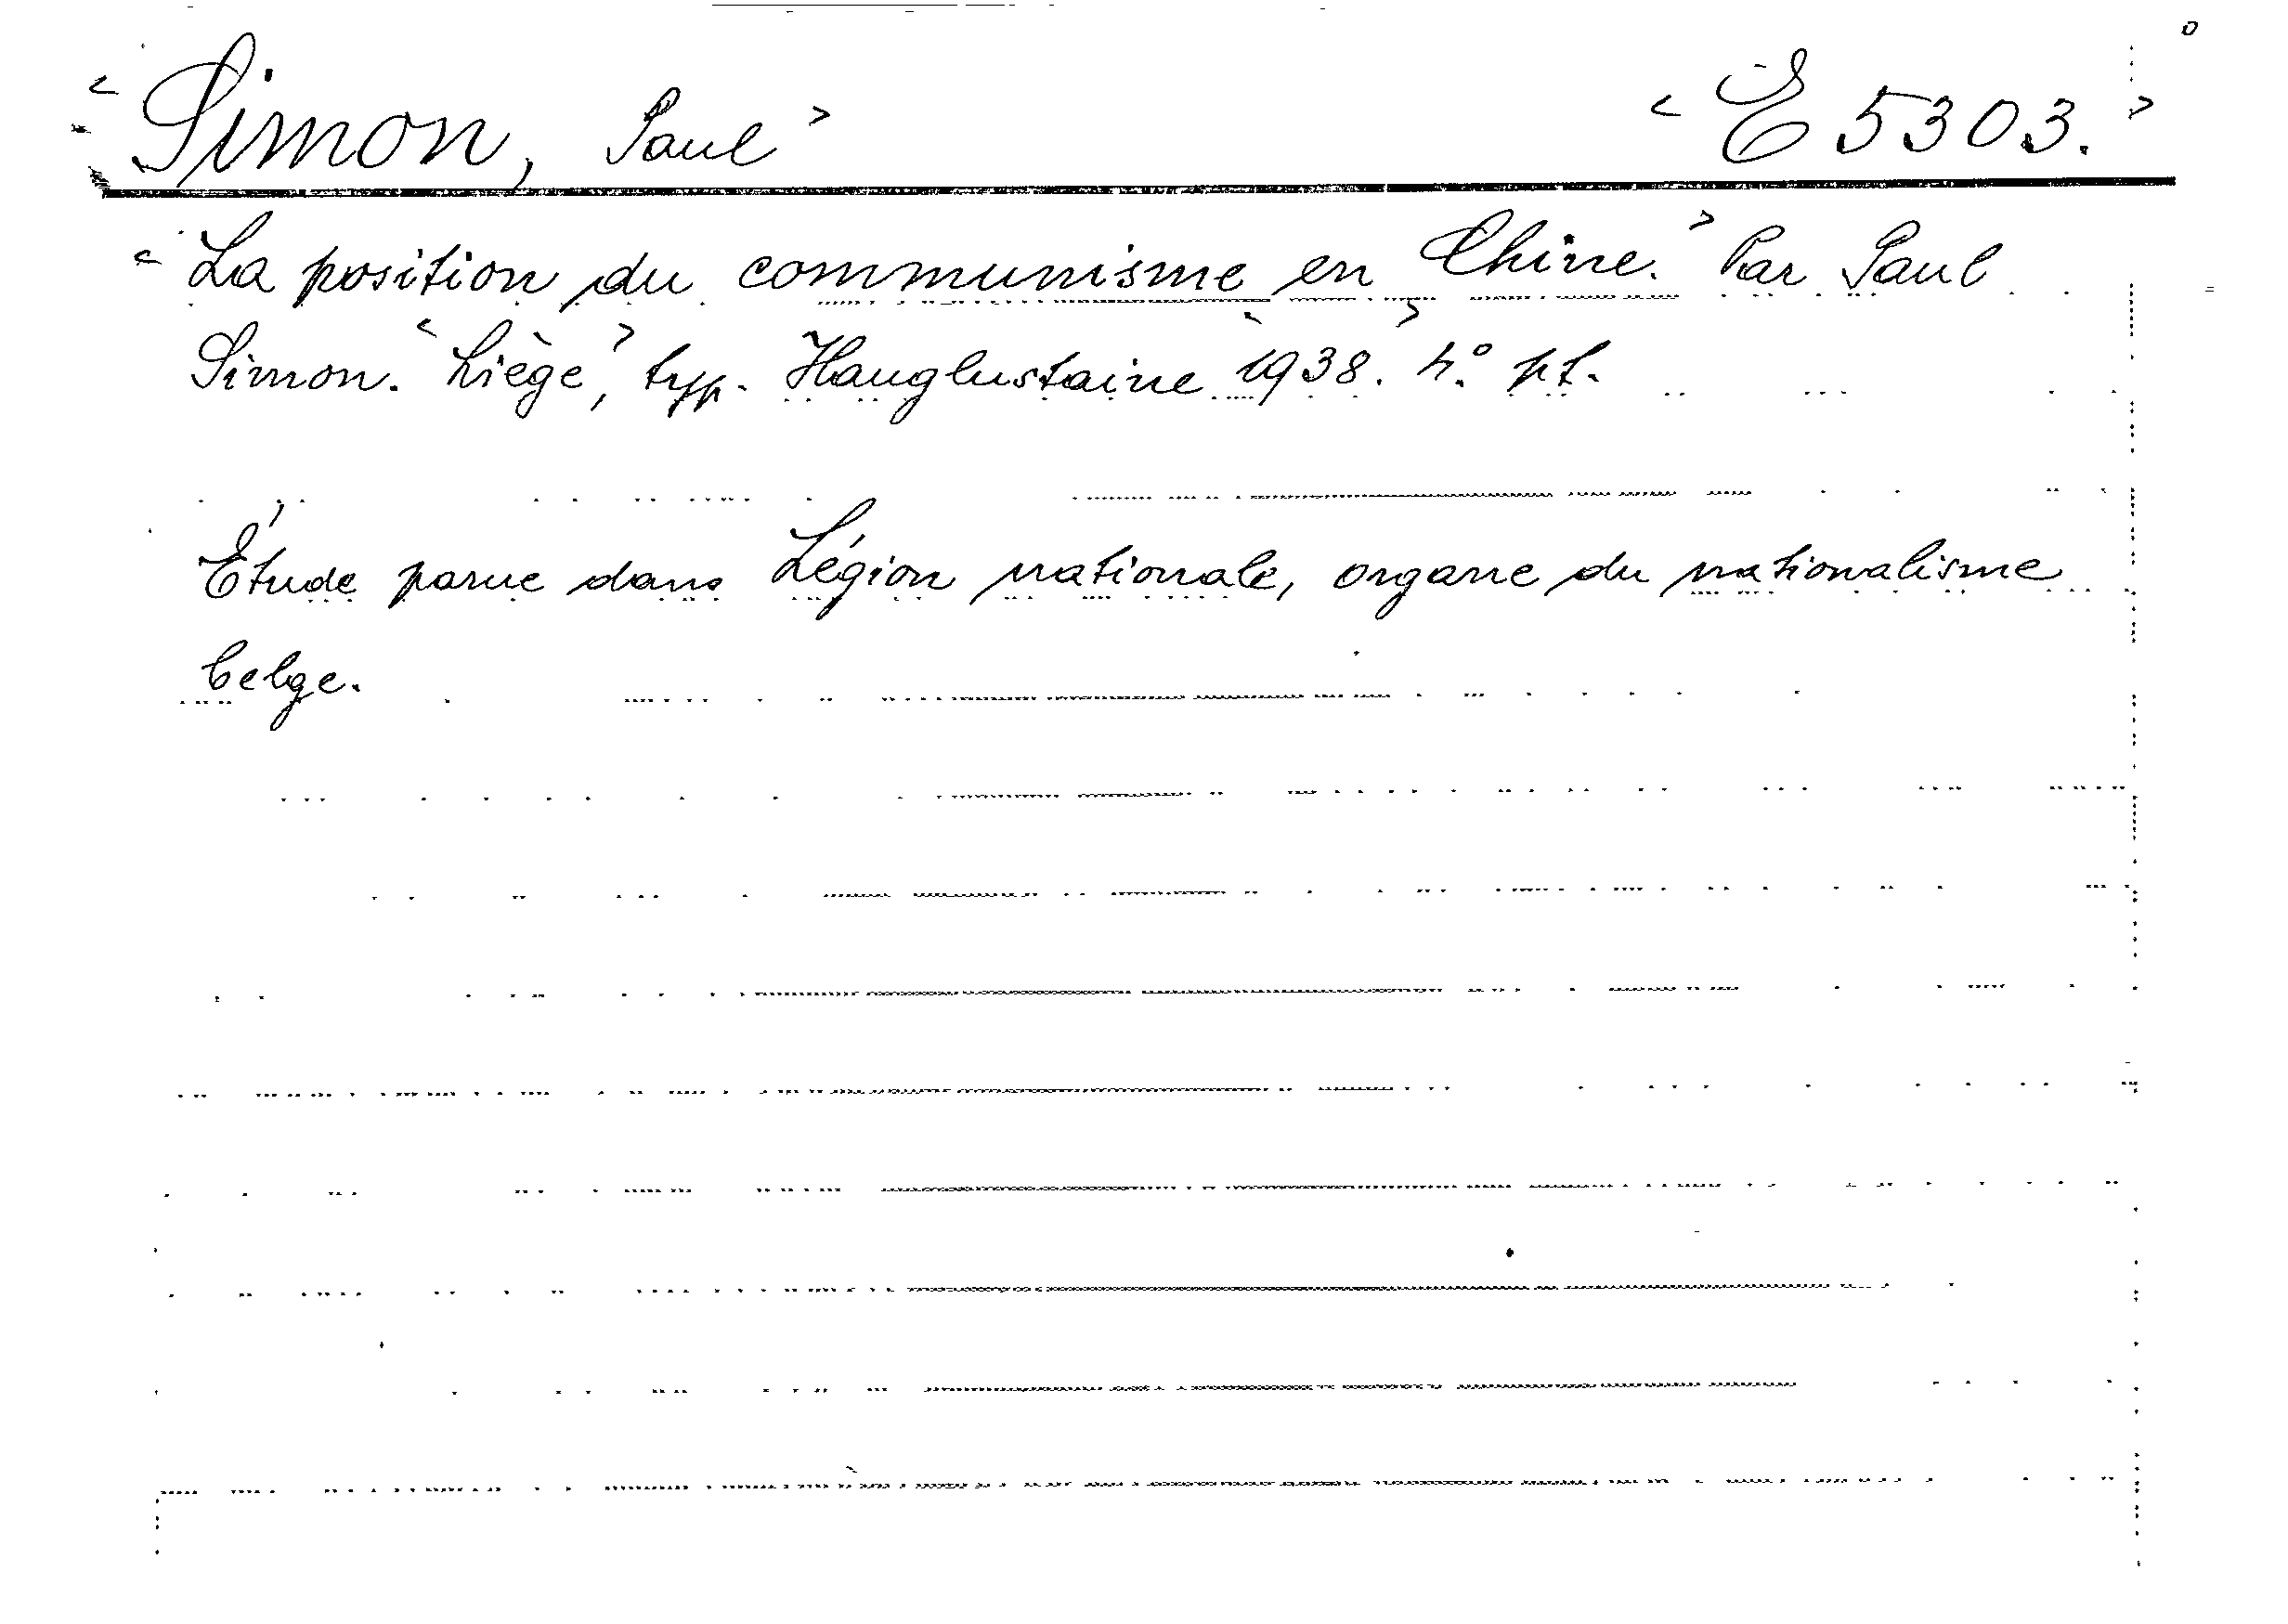 < Simon, Paul > < E 5303. >
< La position du communisme en Chine. > Par Paul
Simon. < Liège >, typ. Hauglustaine < 1938. > 4.° pl.
Étude parue dans Légion nationale, organe du nationalisme
belge.